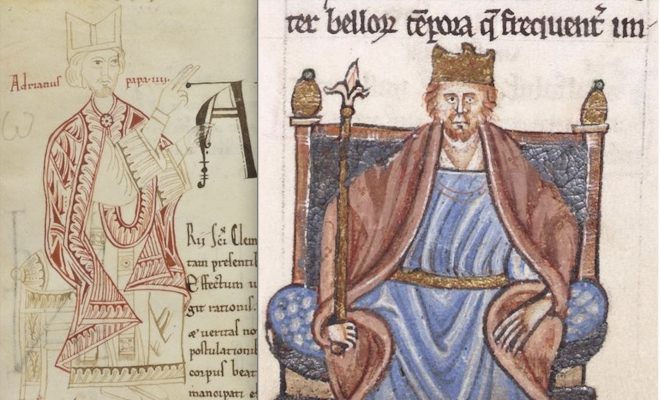 Adrianus papa.iiii.
A
Rii sc̄i Clem
tam presentib
Effectum u
git rationis.
æ veritas no
postulationib
corpus beat
mancipati e
ter belloꝝ tēpora q̄ frequent̄ im-